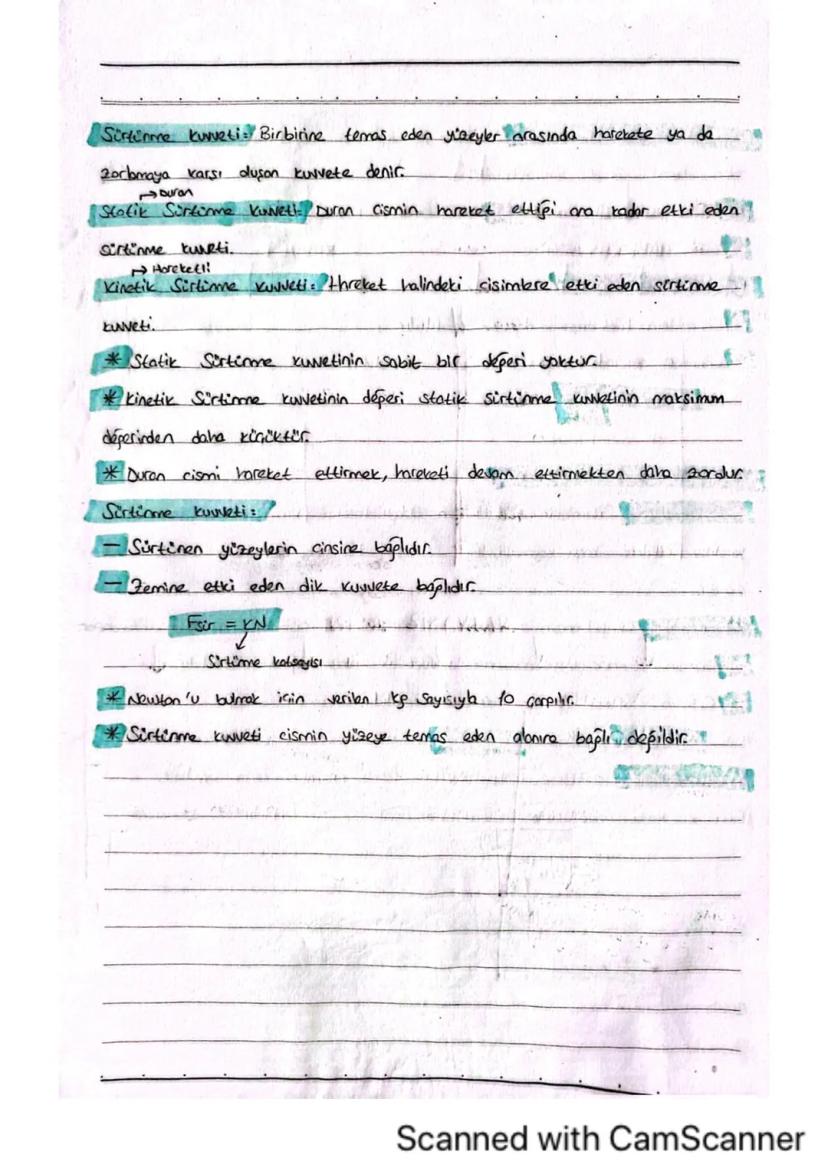 Sürtünme kuvveti: Birbirine temas eden yüzeyler arasında harekete ya da
zorlamaya karşı oluşan kuvvete denir.
→ Duran
Statik Sürtünme Kuvveti: Duran cismin hareket ettiği ana kadar etki eden
sürtünme kuvveti.
→ Hareketli
Kinetik Sürtünme Kuvveti: Hareket halindeki cisimlere etki eden sürtünme
kuvveti.
* Statik Sürtünme kuvvetinin sabit bir değeri yoktur.
* Kinetik Sürtünme kuvvetinin değeri statik sürtünme kuvvetinin maksimum
değerinden daha küçüktür.
* Duran cismi hareket ettirmek, hareketi devam ettirmekten daha zordur.
Sürtünme kuvveti:
— Sürtünen yüzeylerin cinsine bağlıdır.
— Zemine etki eden dik kuvvete bağlıdır.
Fsür = kN
Sürtünme katsayısı
* Newton'u bulmak için verilen kg sayısıyla 10 çarpılır.
* Sürtünme kuvveti cismin yüzeye temas eden alanına bağlı değildir.
Scanned with CamScanner